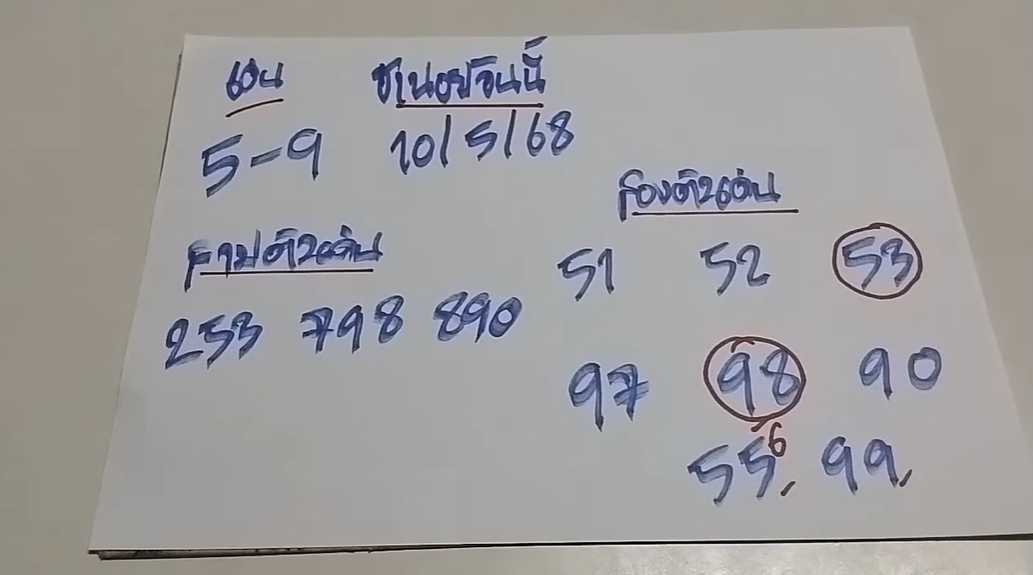 เด่น ฮานอยวันนี้
5-9 10/5/68
สองตัวเด่น
51 52 53
97 98 90
6
55, 99,
สามตัวเด่น
253 798 890